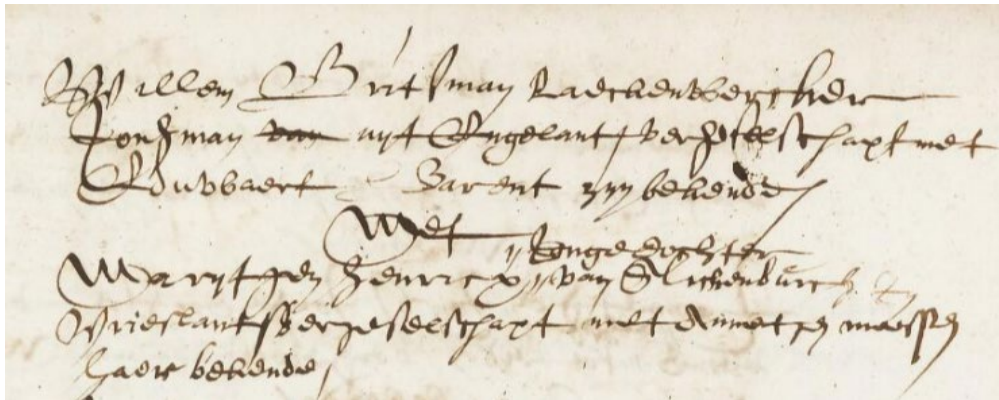 Willem Britsman Laeckenwercker
Jonghman van uyt Engelant, vergeselschapt met
Eduwaert Barent zijn bekende
Met
Jonge dochter
Marijtgen Henricx van Slickenburch in
Vrieslant vergeselschapt met Annetgen maessen
haer bekende